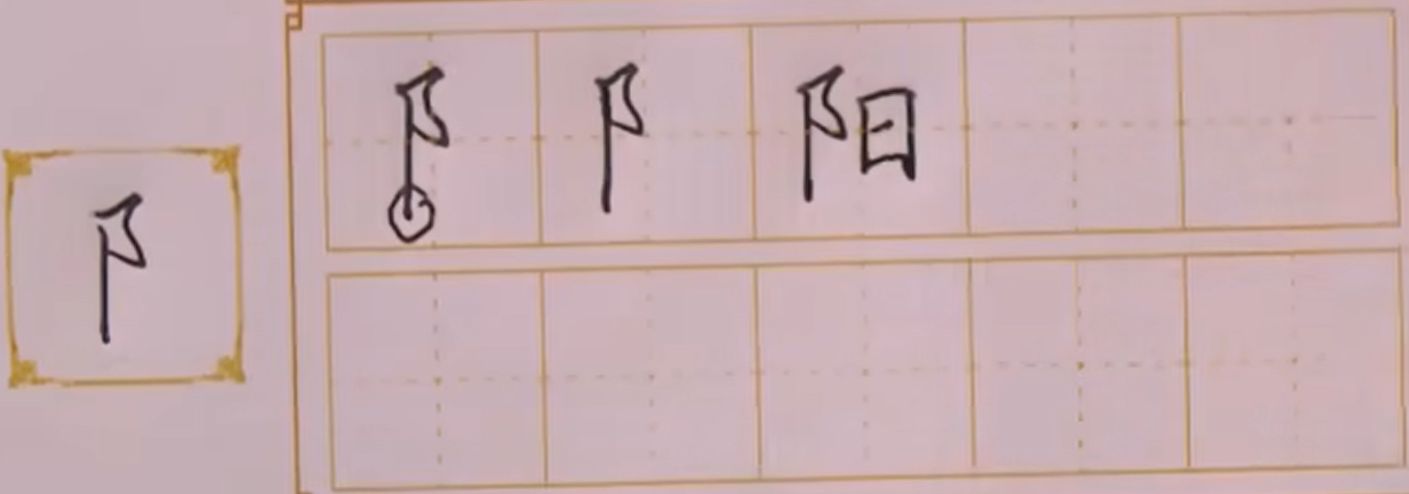 阝
阝 阝 阳